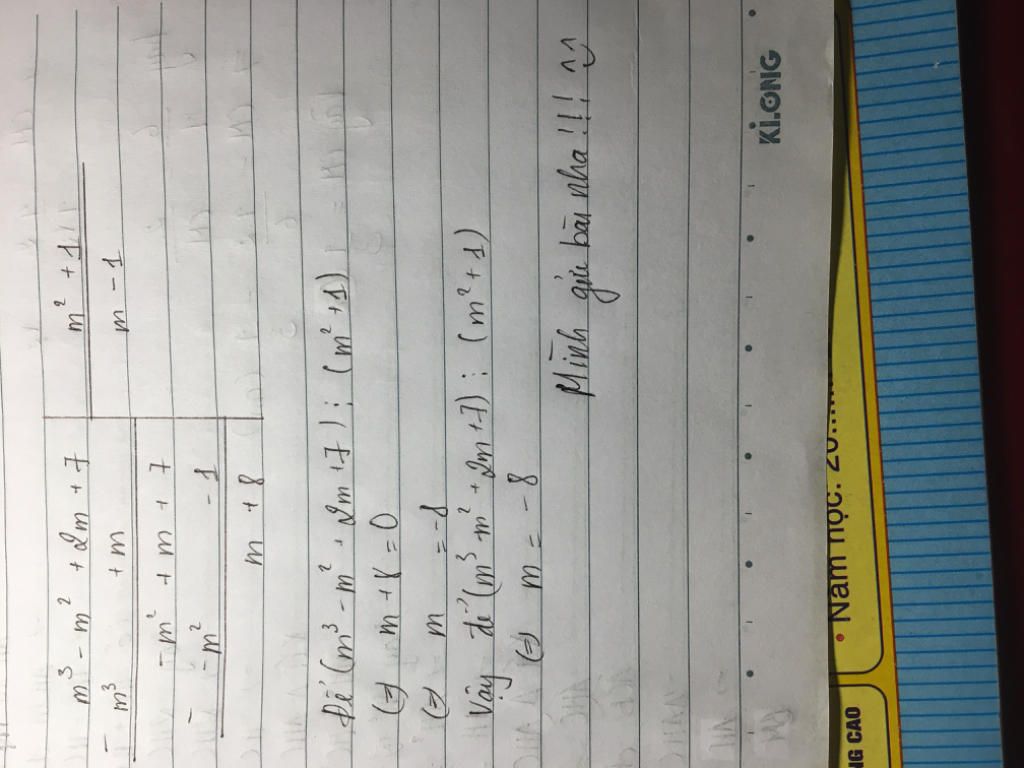 m³ - m² + 2m + 7 | m² + 1
- m³ + m | m - 1
- m² + m + 7
- - m² - 1
m + 8
Để (m³ - m² + 2m + 7) ⋮ (m² + 1)
(=) m + 8 = 0
(=) m = -8
Vậy để (m³ - m² + 2m + 7) ⋮ (m² + 1)
(=) m = -8
Mình gửi bạn nha!!! ^^
KLONG
• Năm học: 20
NG CAO